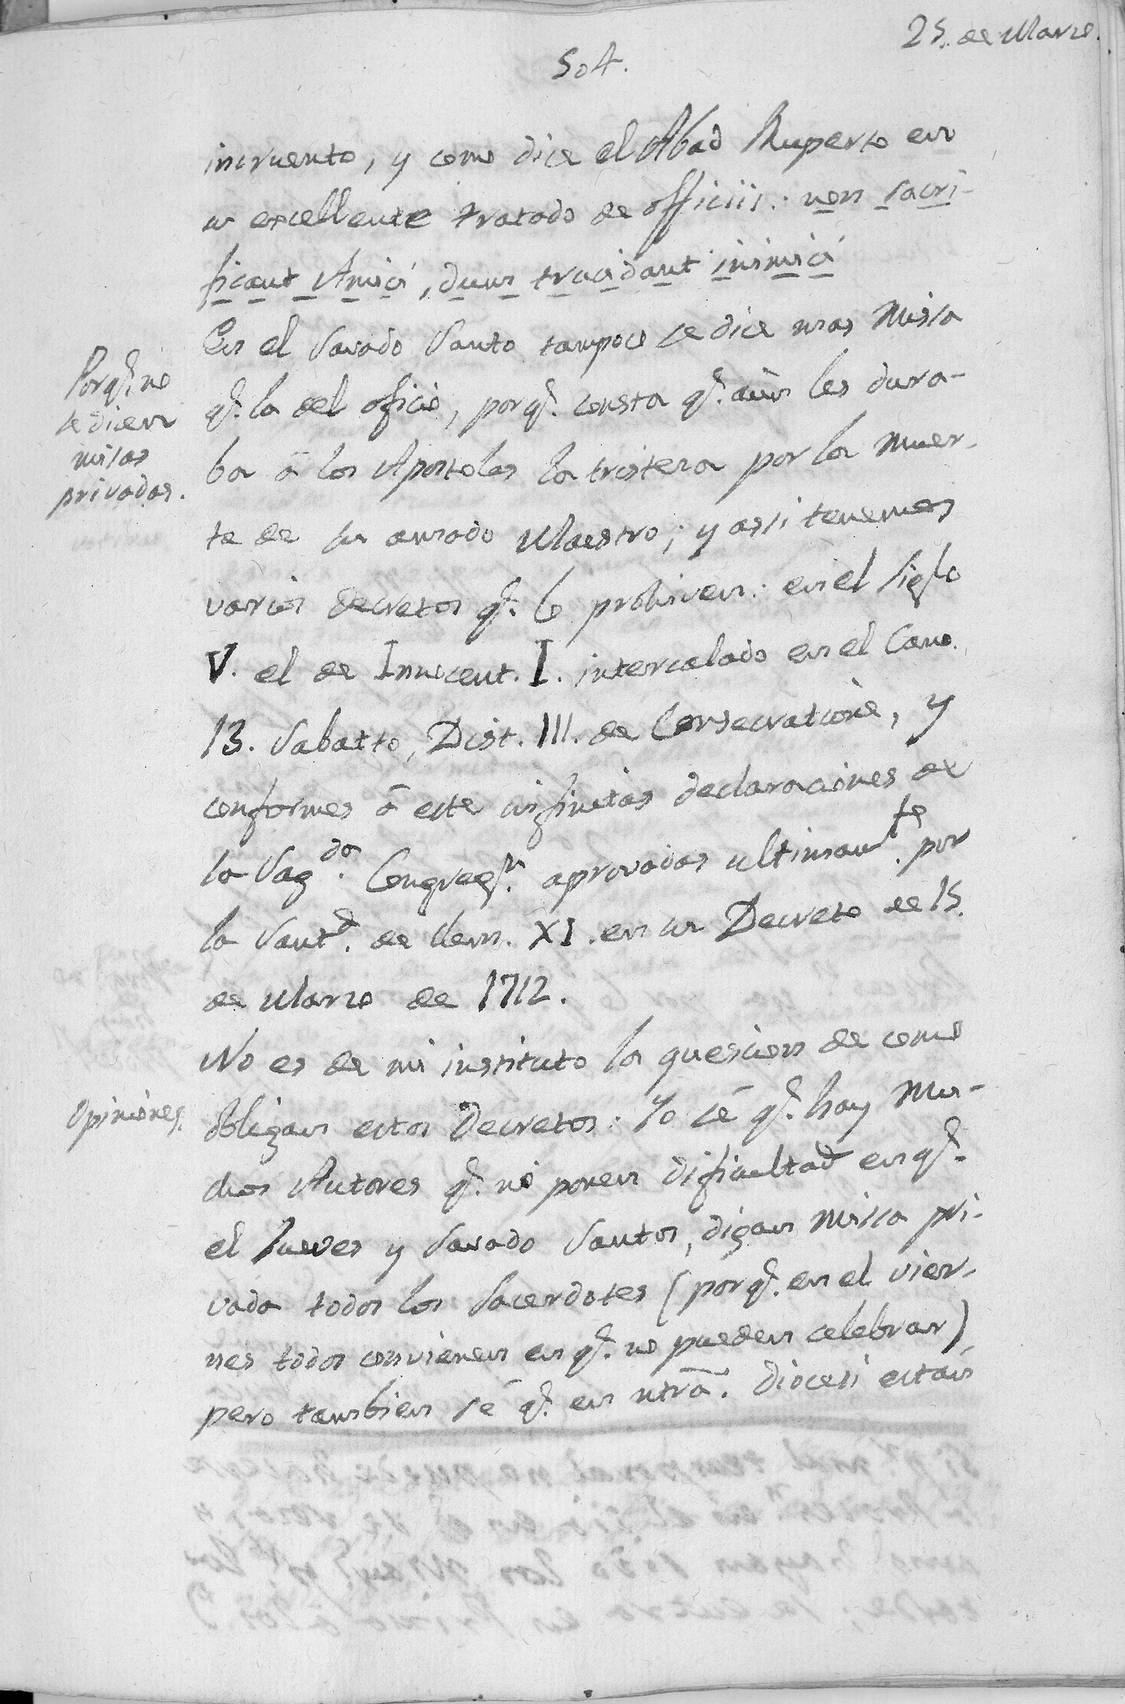 25. de Marzo.
504.
incruento, y como dice el Abad Ruperto en
su excellente tratado de officiis: non sacri-
ficant Amici, dum trucidant inimici
En el Savado Santo tampoco se dice mas Missa
q.e la del oficio, porq.e consta q.e aún les dura-
ba â los Apostoles la tristeza por la Muer-
te de su amado Maestro; y assi tenemos
varios decretos q.e lo prohiven: en el siglo
V. el de Innocent. I. intercalado en el Cano.
13. Sabatto, Dist. III. de Consecratione, y
conformes â este infinitas declaraciones de
la Sag.da Congreg.n aprovadas ultimam.te por
la Sant.d de Clem. XI. en su Decreto de 15.
de Marzo de 1712.
No es de mi instituto la quescion de como
obligan estos Decretos: Yo sé q.e hay Mu-
chos Autores q.e no ponen dificultad en q.e
el Jueves y Savado Santos, digan Missa pri-
vada todos los Sacerdotes (porq.e en el vier-
nes todos convienen en q.e no pueden celebrar)
pero tambien sé q.e en ntrâ. Diocesi estan
Porq.e no
se dicen
misas
privadas.
Opiniones.